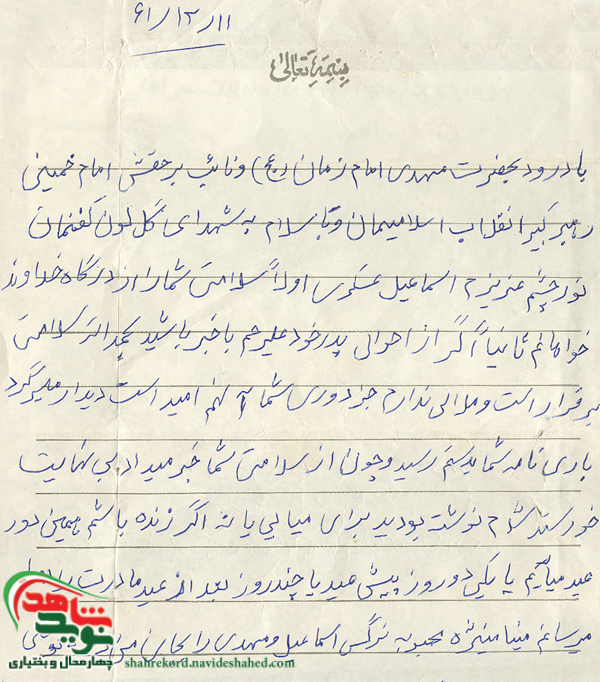 ۶۱/۱۲/۱۱
بسمه تعالی
با درود بحضرت مهدی امام زمان (عج) و نائب بر حقش امام خمینی
رهبر کبیر انقلاب اسلامیمان و با سلام به شهدای گل لون کفنمان
نور چشم عزیزم اسماعیل عسکری اولاً سلامتی شما را از درگاه خداوند
خواهانم ثانیاً اگر از احوالی پدر خود علیرحم باخبر باشید بحمدالله سلامتی
برقرار است و ملالی ندارم جز دوری شما آنهم امید است دیدار میگردد
باری نامه شما بدستم رسید و چون از سلامتی شما خبر میداد بی نهایت
خورسند شدم نوشته بودید برای میایی یا نه اگر زنده باشم همین دور
عید میآیم یا یکی دو روز پیش عید یا چند روز بعد از عید مادرت
میرسانم مینا منیژه محبوبه نرگس اسماعیل و مهدی را بجای من
نوید شاهد
چهارمحال و بختیاری
shahrekord.navideshahed.com